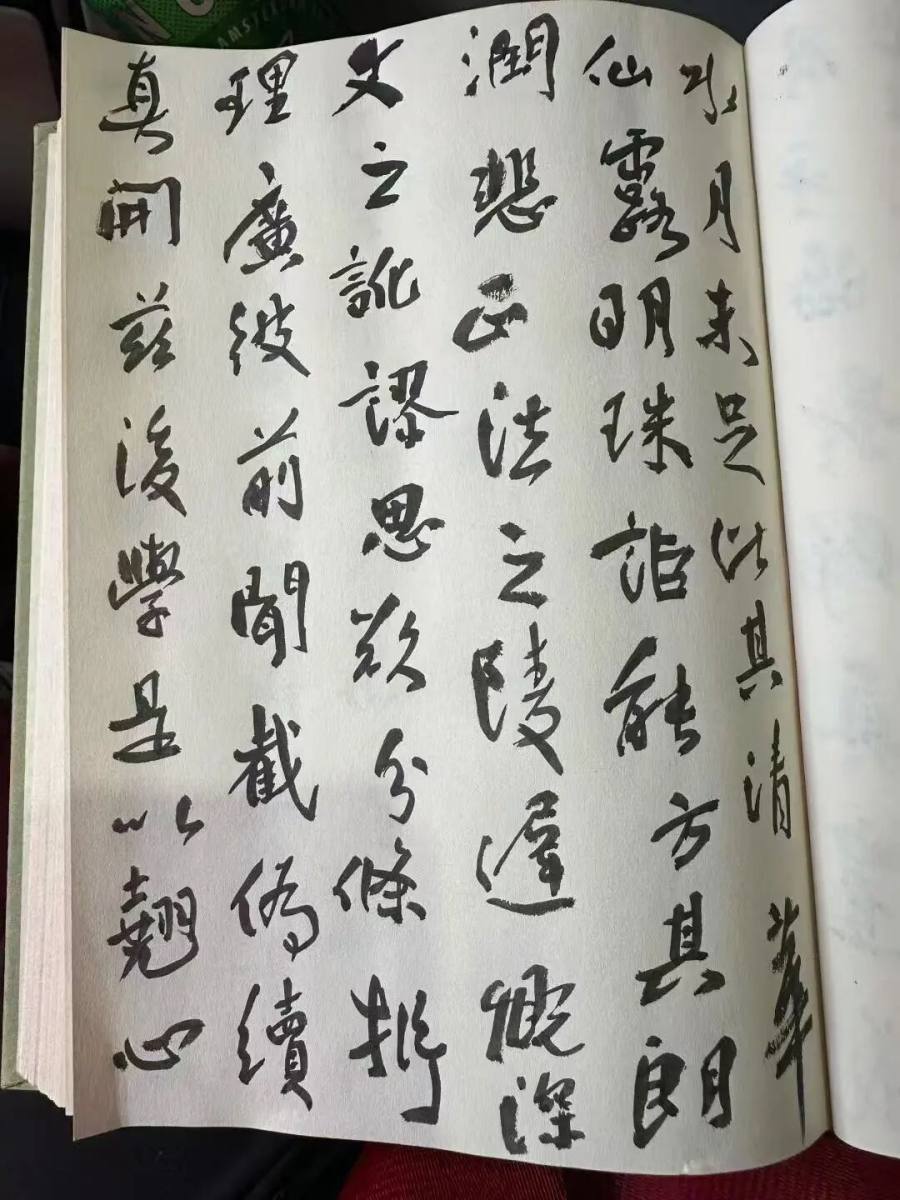 水月未足比其清華
仙露明珠詎能方其朗
潤悲正法之陵遲慨深
文之訛謬思欲分條析
理廣彼前聞截偽續
真開茲後學是以翹心